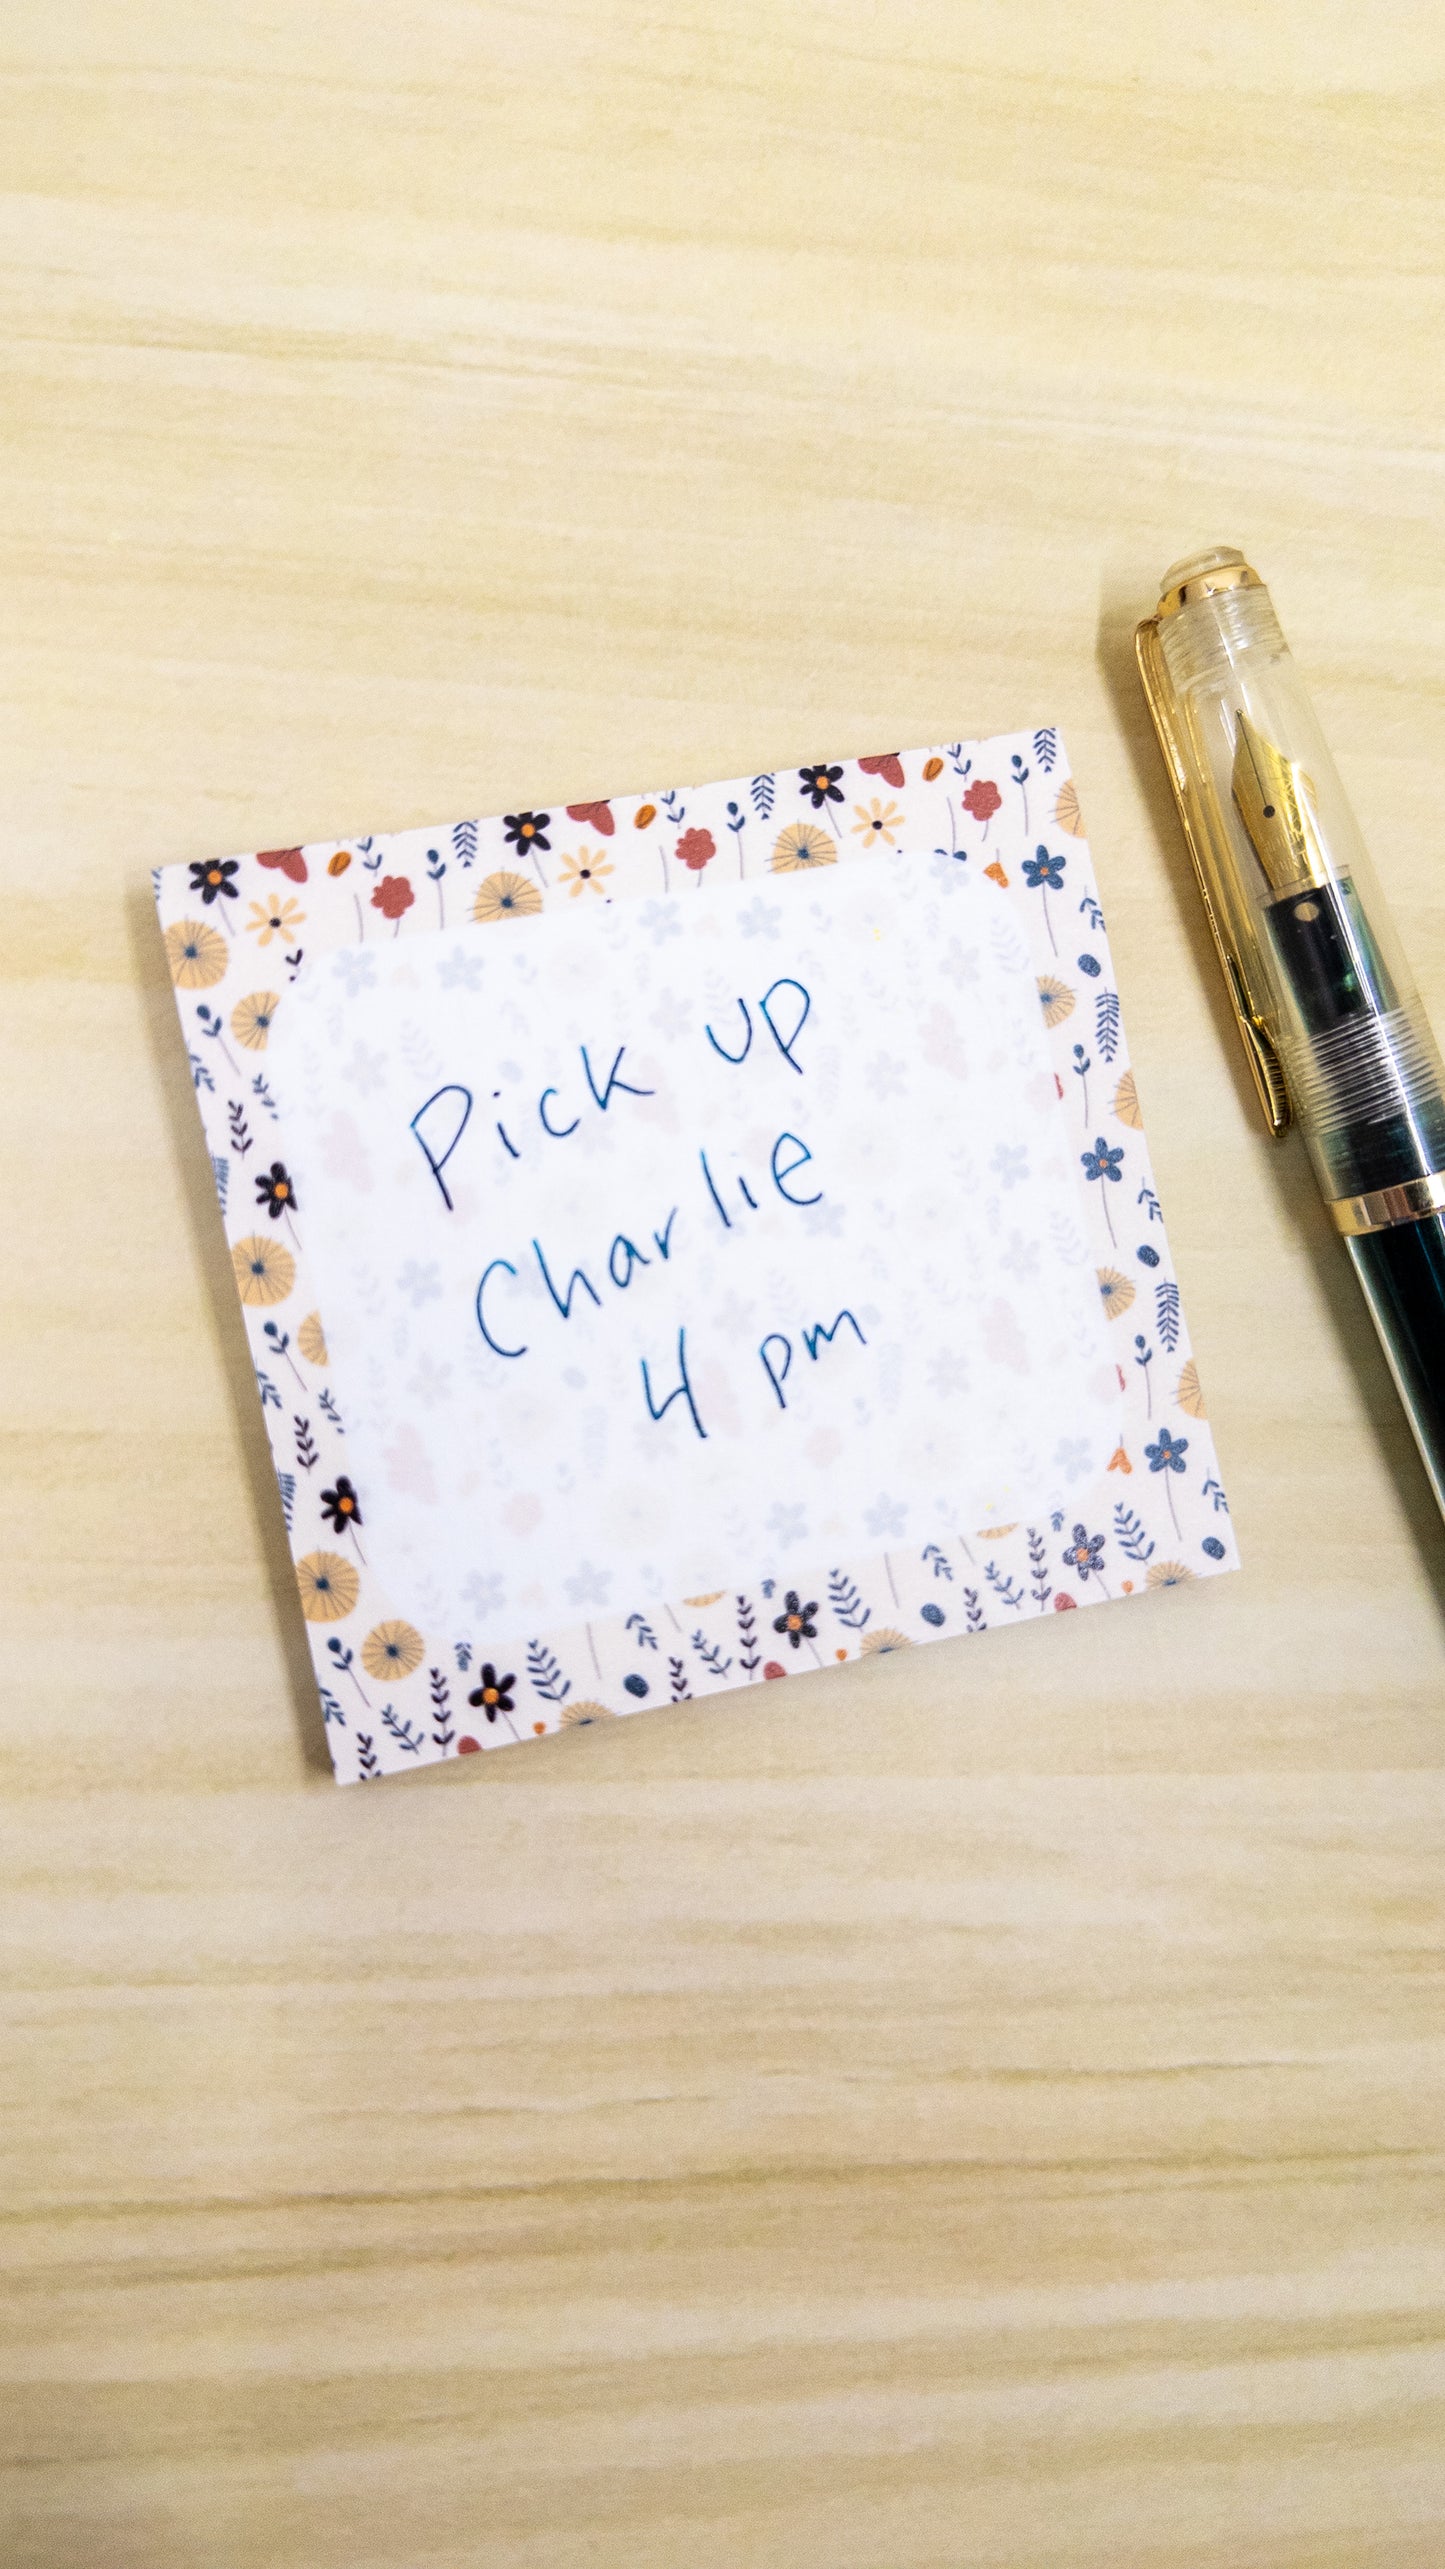 Pick up
Charlie
4 pm